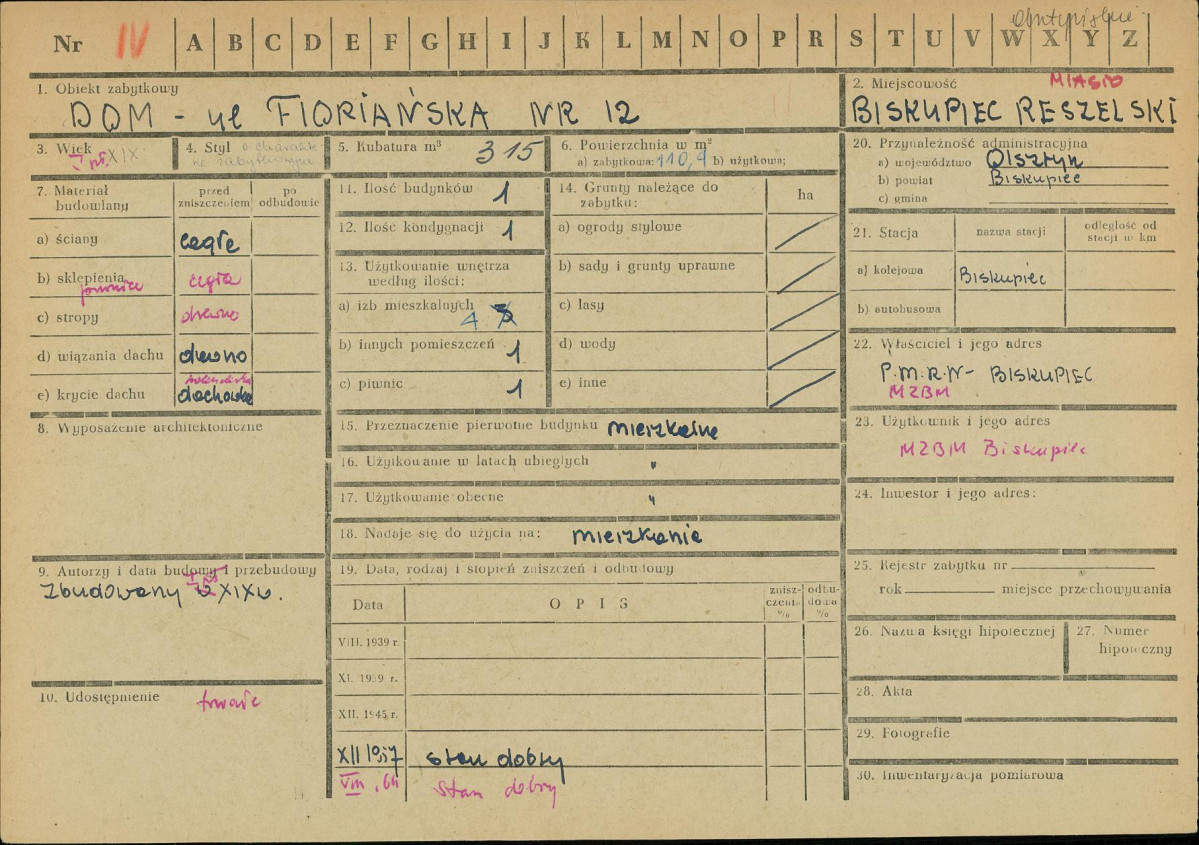 Nr IV A B C D E F G H I J K L M N O P R S T U V W X Y Z
1. Obiekt zabytkowy
DOM - ul FLORIAŃSKA NR 12
2. Miejscowość MIASTO
BISKUPIEC RESZELSKI
3. Wiek
I poł. XIX
4. Styl o charakt.
5. Kubatura m³ 315
6. Powierzchnia w m²
a) zabytkowa: 110,4 b) użytkowa;
7. Materiał budowlany
przed zniszczeniem
po odbudowie
a) ściany cegłę
b) sklepienia cegła
piwnice
c) stropy drewno
d) wiązania dachu drewno
e) krycie dachu dachówka
8. Wyposażenie architektoniczne
9. Autorzy i data budowy i przebudowy
Zbudowany w XIXw.
10. Udostępnienie trwałe
11. Ilość budynków 1
12. Ilość kondygnacji 1
13. Użytkowanie wnętrza
według ilości:
a) izb mieszkalnych 4 3
b) innych pomieszczeń 1
c) piwnic 1
14. Grunty należące do
zabytku:
ha
a) ogrody stylowe
b) sady i grunty uprawne
c) lasy
d) wody
e) inne
15. Przeznaczenie pierwotne budynku mieszkalne
16. Użytkowanie w latach ubiegłych "
17. Użytkowanie obecne "
18. Nadaje się do użycia na: mieszkanie
19. Data, rodzaj i stopień zniszczeń i odbudowy
Data
OPIS
znisz-
czenia
%
odbu-
dowa
%
VIII. 1939 r.
XI. 1939 r.
XII. 1945 r.
XII 1957 stan dobry
VIII. 64 Stan dobry
20. Przynależność administracyjna
a) województwo Olsztyn
b) powiat Biskupiec
c) gmina
21. Stacja
nazwa stacji
odległość od
stacji w km
a) kolejowa Biskupiec
b) autobusowa
22. Właściciel i jego adres
P.M.R.N - BISKUPIEC
MZBM
23. Użytkownik i jego adres
MZBM Biskupiec
24. Inwestor i jego adres:
25. Rejestr zabytku nr
rok miejsce przechowywania
26. Nazwa księgi hipotecznej
27. Numer
hipoteczny
28. Akta
29. Fotografie
30. Inwentaryzacja pomiarowa